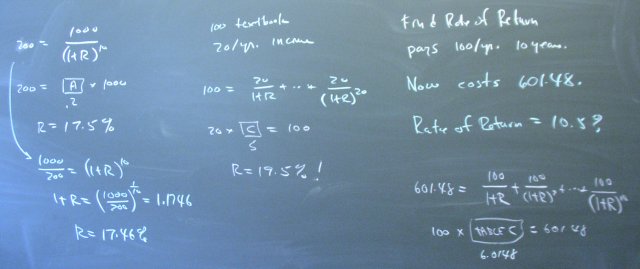 200 = 1000 / (1+R)^10
200 = [A] × 1000
.2
R = 17.5%
1000/200 = (1+R)^10
1+R = (1000/200)^1/10 = 1.1746
R = 17.46%
100 textbook
20/yr. income
100 = 20/1+R + ... + 20/(1+R)^20
20 × [C] = 100
5
R = 19.5% !
Find Rate of Return
pays 100/yr. 10 years.
Now costs 601.48.
Rate of Return = 10.5?
601.48 = 100/1+R + 100/(1+R)^2 + ... + 100/(1+R)^10
100 × [TABLE C] = 601.48
6.0148